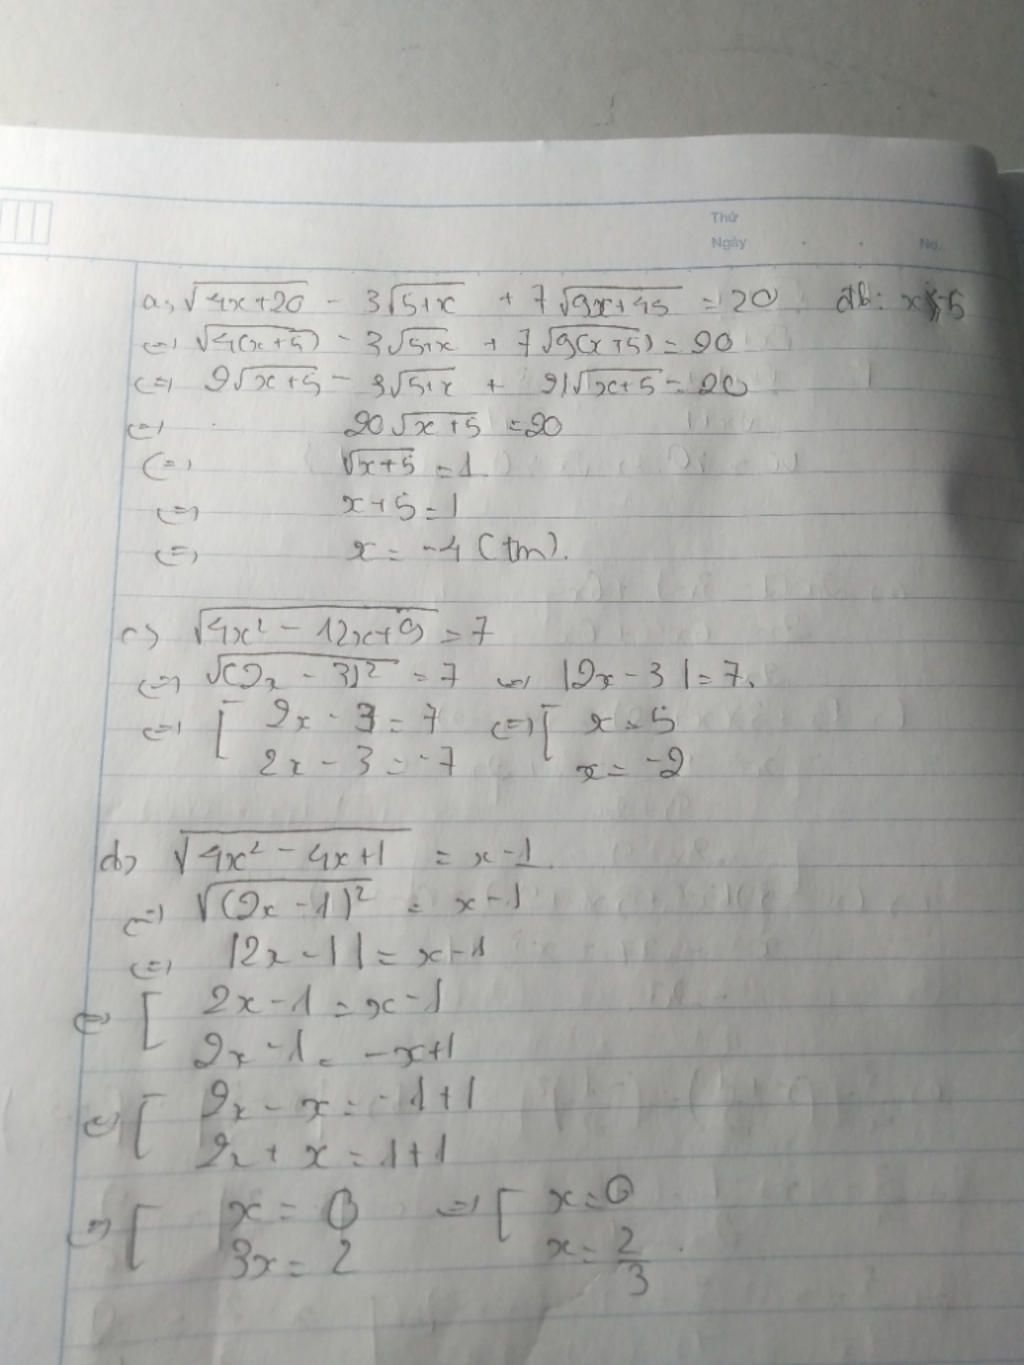 Thứ
Ngày No.
a, √4x+20 - 3√5+x + 7√9x+45 = 20 đk: x -5
(=) √4(x+5) - 3√5+x + 7√9(x+5) = 20
(=) 2√x+5 - 3√5+x + 21√x+5 = 20
(=) 20√x+5 = 20
(=) √x+5 = 1
(=) x+5 = 1
(=) x = -4 (tm).
c) √4x² - 12x+9 = 7
(=) √(2x - 3)² = 7 (=) |2x - 3| = 7.
(=) [ 2x - 3 = 7 (=) [ x = 5
2x - 3 = -7 x = -2
d) √4x² - 4x+1 = x-1
(=) √(2x-1)² = x-1
(=) |2x-1| = x-1
(=) [ 2x-1 = x-1
2x-1 = -x+1
(=) [ 2x - x = -1+1
2x + x = 1+1
(=) [ x = 0 (=) [ x = 0
3x = 2 x = 2/3.